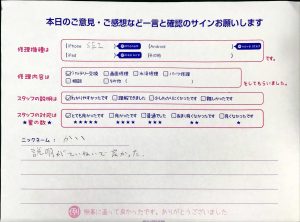 本日のご意見・ご感想など一言と確認のサインお願いします
修理機種は
iPhone SE2
Android
iPad
その他
です。
修理内容は
☑バッテリー交換 □画面修理 □水没修理 □パーツ修理
□相談 □その他( )
をしてもらいました。
スタッフの説明は
☑わかりやすかったです □理解できました □少しわかりにくかったです □難しかったです
スタッフの対応は
★星の数★
☑とても良かったです □良かったです □普通でした □あまり良くなかったです □良くなかったです
★★★★★ ★★★★ ★★★ ★★ ★
ニックネーム:
説明がていねいで良かった。
無事に直って良かったです。ありがとうございました